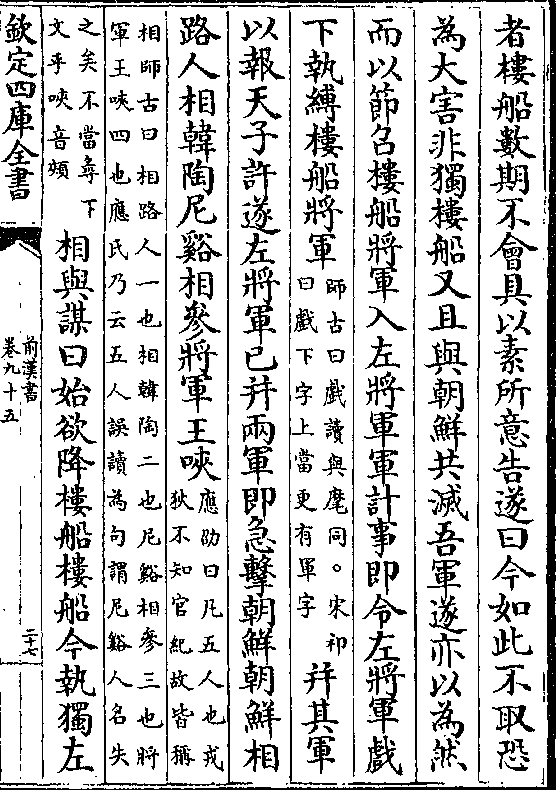 者樓船數期不會具以素所意告遂曰今如此不取恐
為大害非獨樓船又且與朝鮮共滅吾軍遂亦以為然
而以節召樓船將軍入左將軍軍計事即令左將軍戲
下執縛樓船將軍
師古曰戲讀與麾同。宋祁
曰戲下字上當更有軍字
并其軍
以報天子許遂左將軍已并兩軍即急擊朝鮮朝鮮相
路人相韓陶尼谿相參將軍王唊
應劭曰凡五人也戎
狄不知官紀故皆稱
相師古曰相路人一也相韓陶二也尼谿相參三也將
軍王唊四也應氏乃云五人誤讀為句謂尼谿人名失
之矣不當尋下
文乎唊音頰
相與謀曰始欲降樓船樓船今執獨左
欽定四庫全書
前漢書
卷九十五
二十七